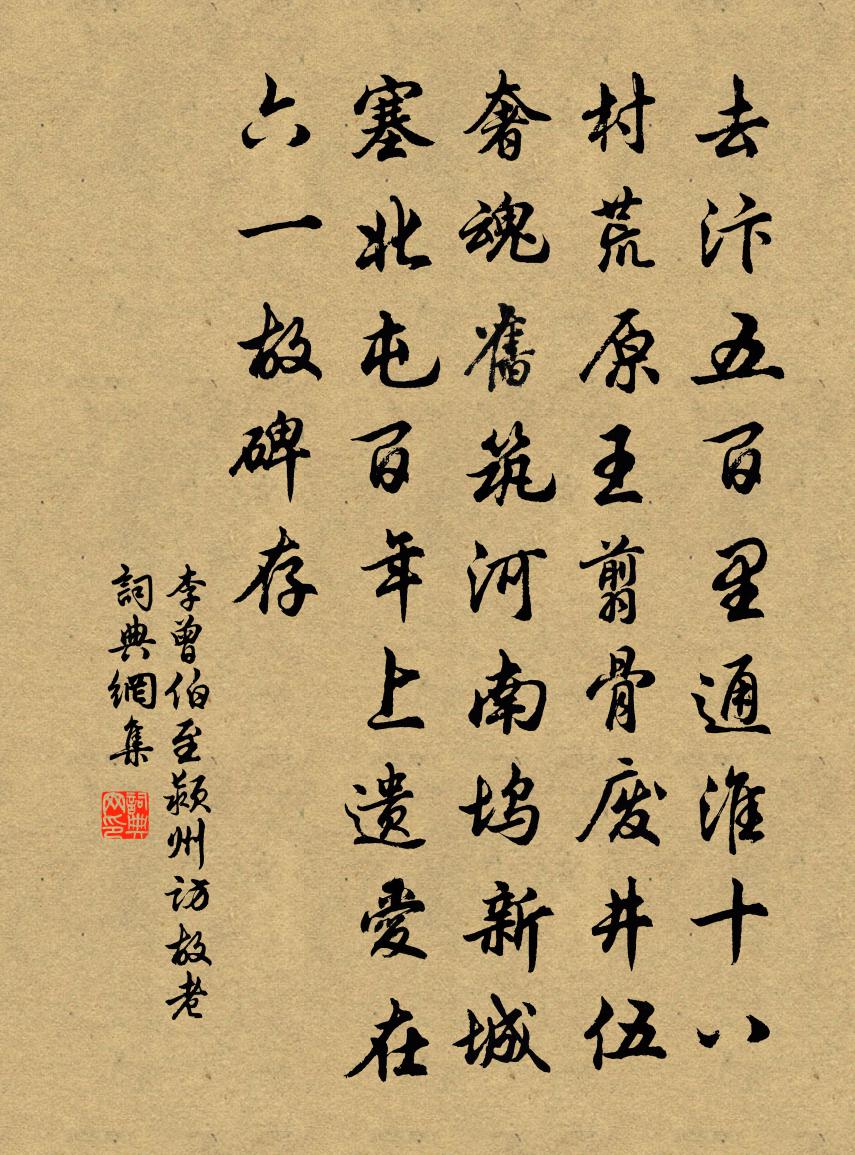 去汴五百里通淮十八
村荒原王翦骨废井伍
奢魂舊筑河南坞新城
塞北屯百年上遗愛在
六一故碑存
李曾伯至颍州访故老
詞典網集
詞典网印